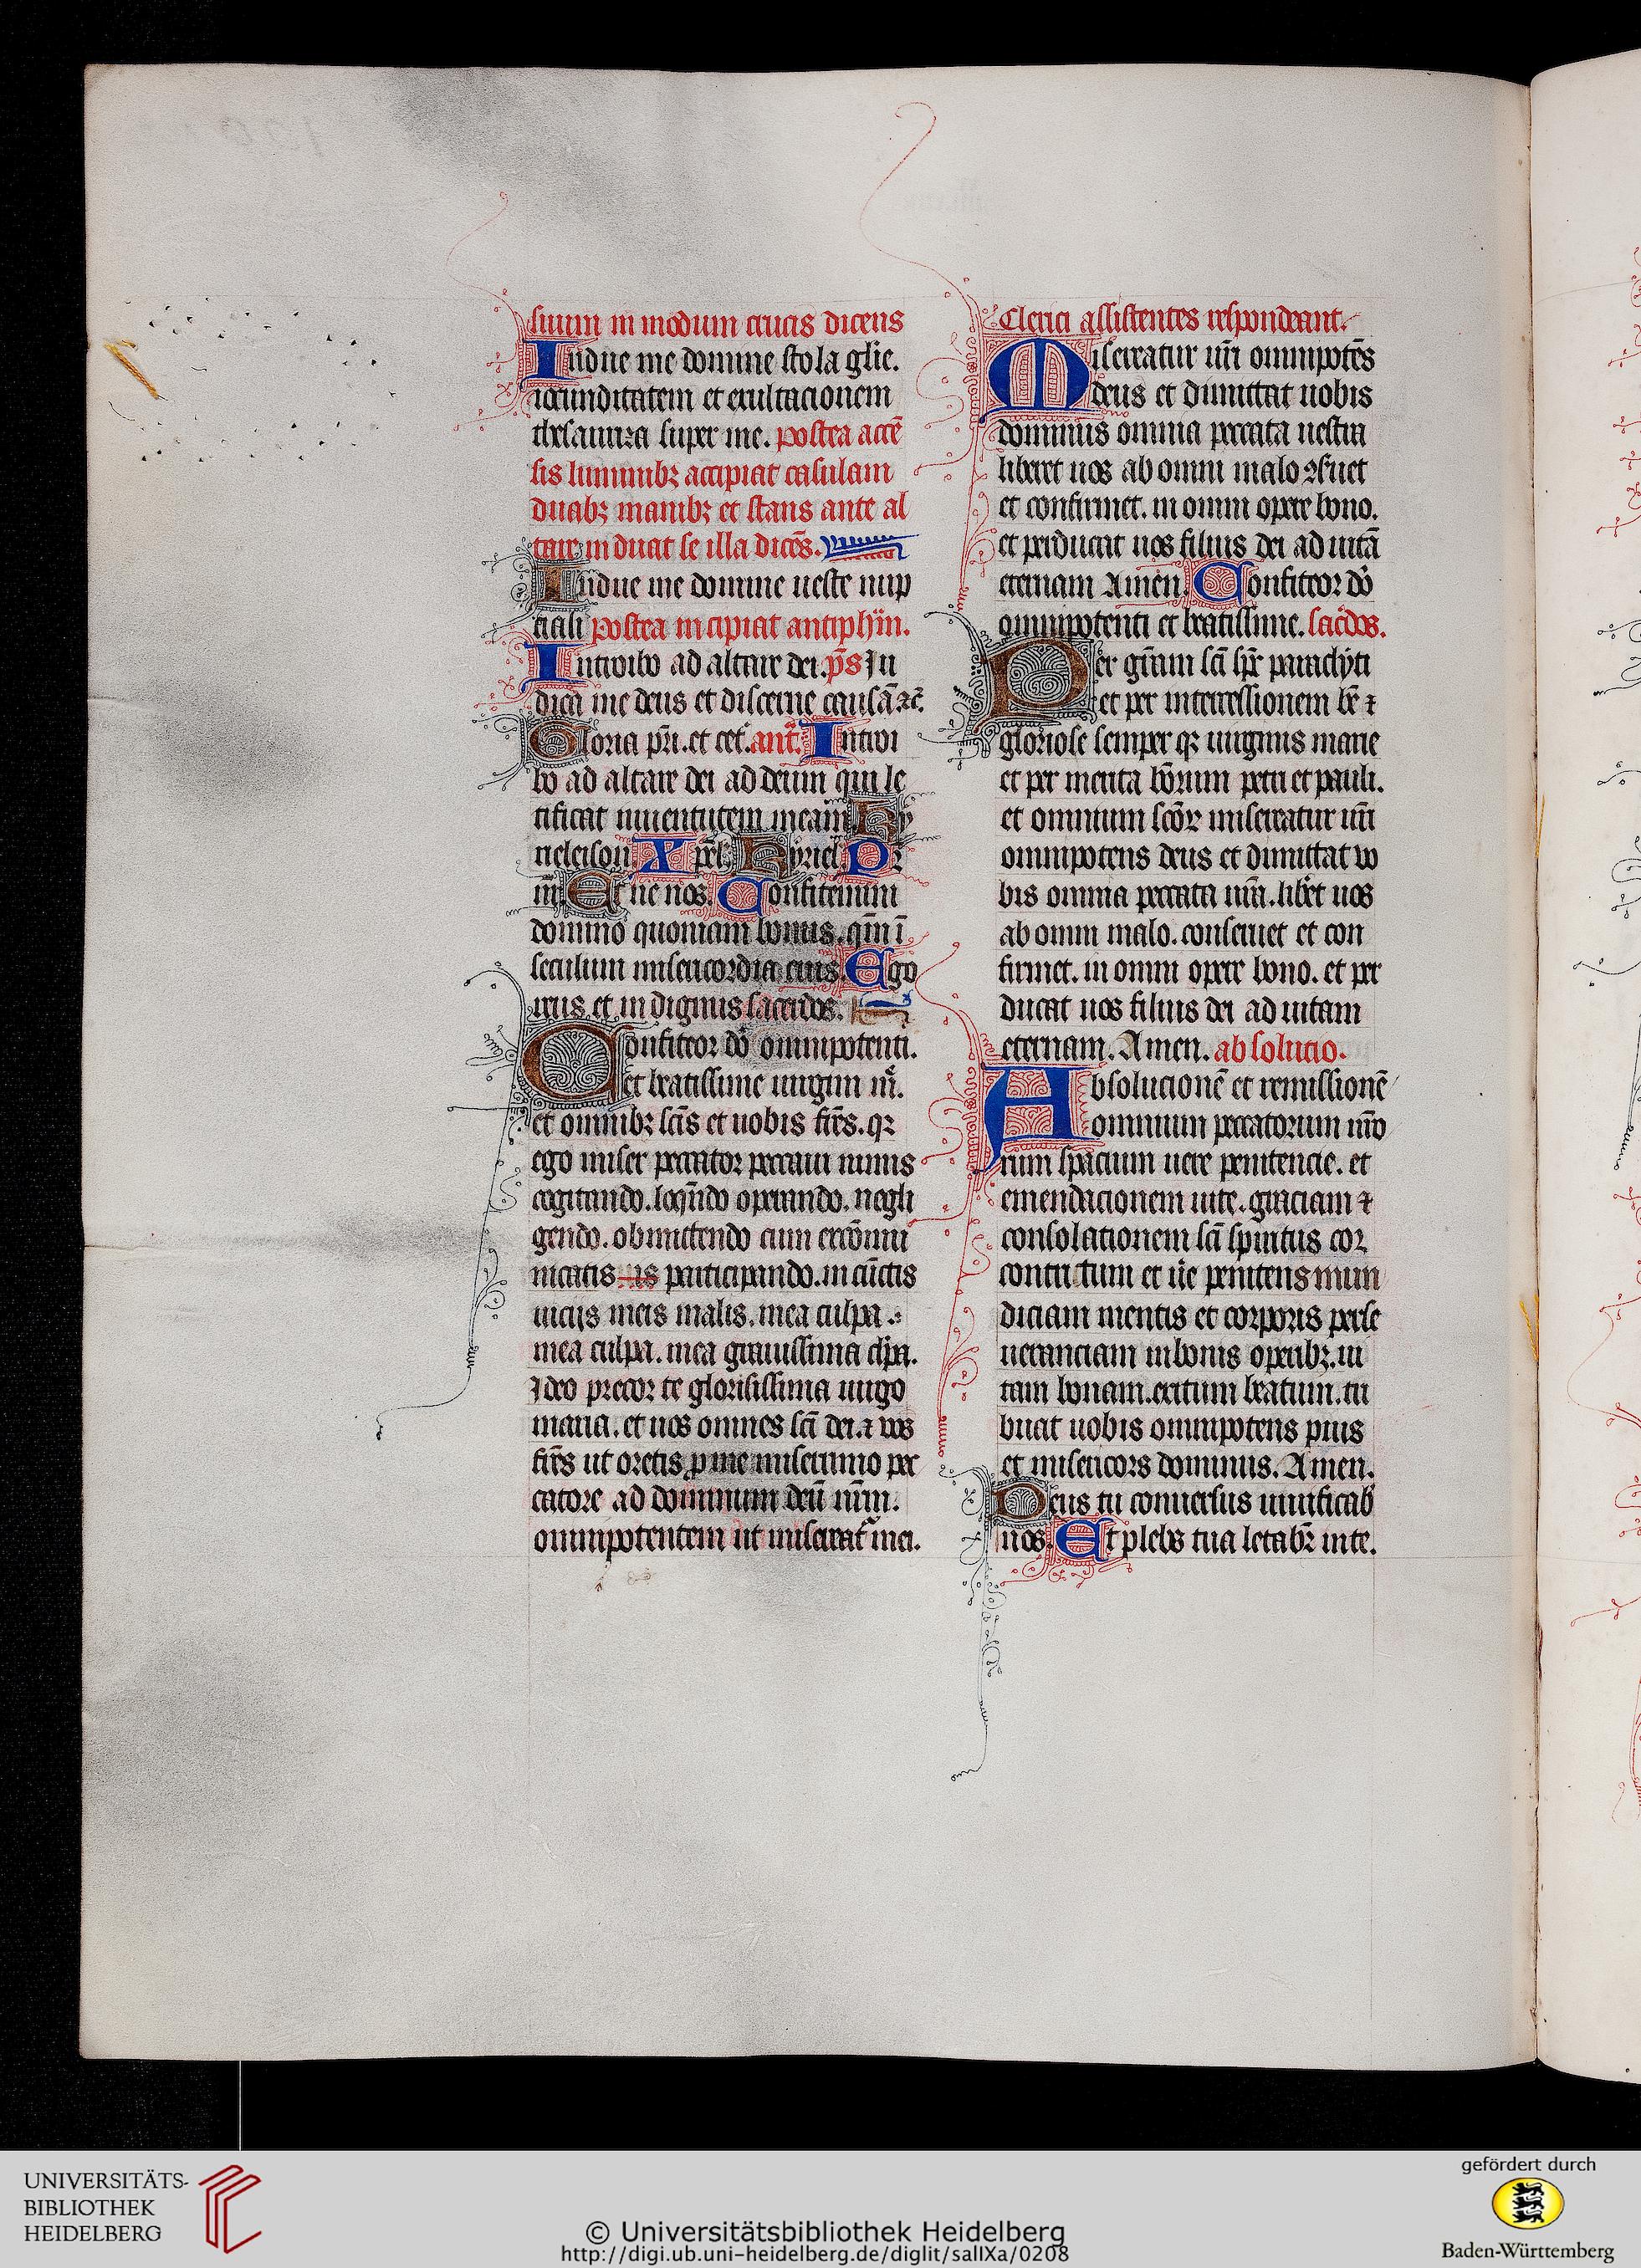 suum in modum crucis dicens
Indue me domine stola glie.
iocunditatem et exultacionem
thesauriza super me. postea accē
sis luminibꝫ accipiat casulam
duabꝫ manibꝫ et stans ante al
tare induat se illa dicēs.
Indue me domine ueste nup
ciali postea incipiat antiphām.
Introibo ad altare dei. p̄s Ju
dica me deus et discerne causā ⁊c̄.
Gloria pri. et cet. ant. Introi
bo ad altare dei ad deum qui le
tificat iuuentutem meam Ky
rieleison Xpel. Kyriel. Pr
nr̄ Et ne nos. Confitemini
domino quoniam bonus. qm̄ ī
seculum misericordia eius. Ego
reus et indignus sacerdos.
Confiteor dō omnipotenti.
et beatissime uirgini m̄.
et omnibꝫ scīs et uobis frēs. qꝫ
ego miser peccator peccaui nimis
cogitando. loqn̄do operando. negli
gendo. obmittendo cum excōmu
nicatis is participando. in cūctis
uicijs meis malis. mea culpa.
mea culpa. mea grauissima clpa.
Ideo precor te gloriosissima uirgo
maria. et uos omnes scī dei. ⁊ vos
frēs ut oretis ꝓ me miserrimo pec
catore ad dominum deū nr̄m.
omnipotentem ut misereat̄ mei.
Clerici assistentes respondeant.
Misereatur ur̄i omnipotēs
deus et dimittat uobis
dominus omnia peccata uestra
liberet uos ab omni malo ꝯseruet
et confirmet. in omni opere bono.
et perducat uos filius dei ad uitā
eternam Amen. Confiteor dō
omnipotenti et beatissime. sacerdos.
Per grām scī spc̄ paraclyti
et per intercessionem bē ⁊
gloriose semper qꝫ uirginis marie
et per merita bōrum petri et pauli.
et omnium scōꝝ misereatur ur̄i
omnipotens deus et dimittat vo
bis omnia peccata ur̄a. libet uos
ab omni malo. conseruet et con
firmet. in omni opere bono. et per
ducat uos filius dei ad uitam
eternam. Amen. absolutio.
Absolucionē et remissionē
omnium peccatorum ur̄o
rum spacium uere penitencie. et
emendacionem uite. graciam ⁊
consolationem scī spiritus cor
contritum et ūe penitens mun
diciam mentis et corporis perse
ueranciam in bonis operibꝫ. ui
tam bonam. exitum beatum. tri
buat uobis omnipotens pius
et misericors dominus. Amen.
Deus tu conuersus uiuificab
nos. Et plebs tua letabꝫ in te.
UNIVERSITÄTS-
BIBLIOTHEK
HEIDELBERG
© Universitätsbibliothek Heidelberg
http://digi.ub.uni-heidelberg.de/diglit/salIXa/0208
gefördert durch
Baden-Württemberg